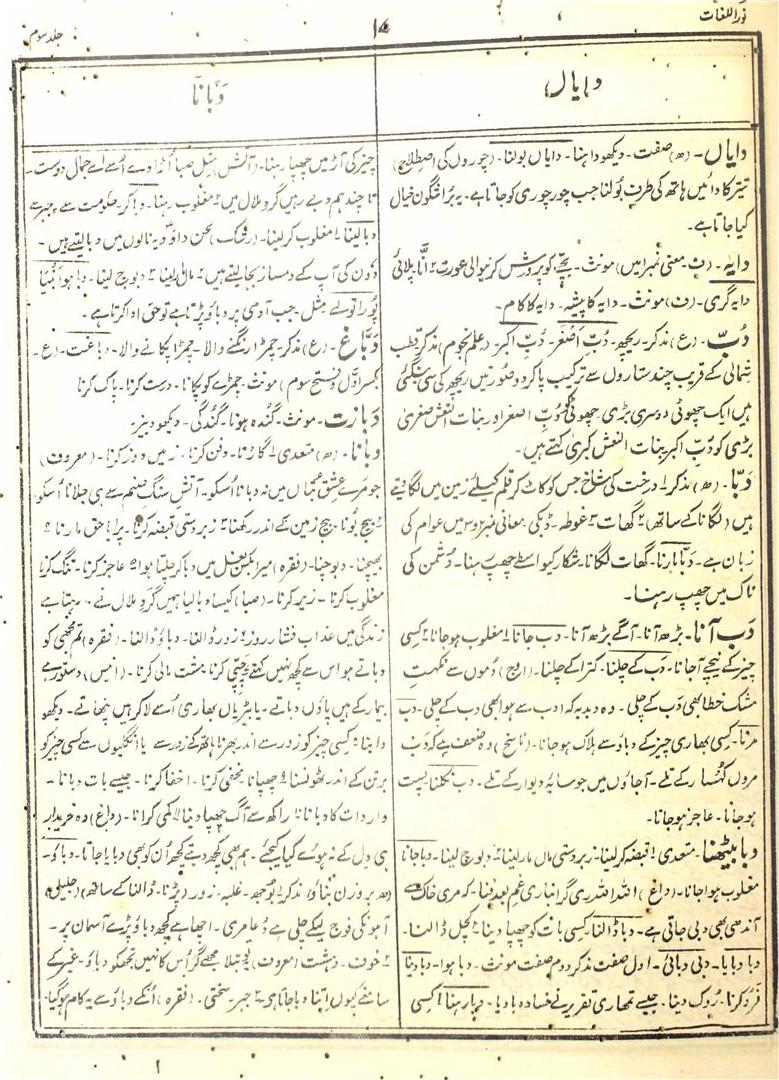 نوراللغات
۱۴
جلد سوم
دایاں
دَبانا
دایاں۔ (ھ) صفت۔ دیکھو داہنا۔ دایاں بولنا۔ (چوروں کی اصطلاح)
تیتر کا دائیں ہاتھ کی طرف بولنا جب چور چوری کو جاتا ہے۔ یہ بُرا شگون خیال
کیا جاتا ہے۔
دایہ۔ (ف۔ معنی نمبر۱ میں) مونث۔ بچّے کو پرورش کرنیوالی عورت ۲ انّا پلائی
دایہ گری۔ (ف) مونث۔ دایہ کا پیشہ۔ دایہ کا کام۔
دُبّ۔ (ع) مذکر۔ ریچھ۔ دُبّ اَصغر۔ دُبّ اکبر۔ (علم نجوم) مذکر۔ قطب
شمالی کے قریب چند ستاروں سے ترکیب پا کر دو صورتیں ریچھ کی سی بنگئی
ہیں ایک چھوٹی دوسری بڑی۔ چھوٹی کو دُبّ اصغر اور بنات النعش صغریٰ
بڑی کو دُبّ اکبر بنات النعش کبریٰ کہتے ہیں۔
دَبّا۔ (ھ) مذکر ۱ درخت کی شاخ جس کو کاٹ کر قلم کیلئے زمین میں لگا دیتے
ہیں (لگانا کے ساتھ) ۲ گھات ۳ غوطہ۔ ڈبکی۔ معانی نمبر ۲ و ۳ میں عوام کی
زبان ہے۔ دَبّا مارنا۔ گھات لگانا۔ شکار کیواسطے چھپ رہنا۔ دُشمن کی
تاک میں چھپ رہنا۔
دَب آنا۔ بڑھ آنا۔ آگے بڑھ آنا۔ دب جانا ۱ مغلوب ہوجانا ۲ کسی
چیز کے نیچے آجانا۔ دَب کے چلنا۔ کترا کے چلنا۔ (اوج) دُموں سے نکہتِ
مشک خطا بھی دَب کے چلی۔ وہ دبدبہ کہ ادب سے ہوا بھی دب کے چلی۔ دب
مرنا۔ کسی بھاری چیز کے دباؤ سے ہلاک ہوجانا۔ (ناسخ) وہ ضعف ہے کہ دَب
مروں کہسار کے تلے۔ آجاؤں میں جو سایۂ دیوار کے تلے۔ دب نکلنا۔ پست
ہوجانا۔ عاجز ہوجانا۔
دبا بیٹھنا۔ متعدی ۱ قبضہ کرلینا۔ زبردستی مال مار لینا ۲ دبوچ لینا۔ دبا جانا
مغلوب ہوا جانا۔ (داغ) اللہ اللہ ری گرانباریِ غم بعد فنا۔ کہ مری خاک سے
آندھی بھی دبی جاتی ہے۔ دبا ڈالنا۔ کسی بات کو چھپا دینا ۲ کچل ڈالنا۔
دبا دبایا۔ دبی دبائی۔ اول صفت مذکر دوم صفت مونث۔ دبا ہوا۔ دبا دینا
فرو کرنا۔ روک دینا۔ جیسے تمھاری تقریر نے فساد دبا دیا۔ دبا رہنا ۱ کسی
چیز کی آڑ میں چھپا رہنا۔ (آتش) مثل صبا اُڑا دے اُسے اے جمال دوست۔
تا چند ہم دبے رہیں گرد ملال میں ۲ مغلوب رہنا۔ دبا کر۔ حکومت سے۔ جبر سے
دبا لینا ۱ مغلوب کرلینا۔ (رشک) لحن داؤدؑ وہ نالوں میں دبا لیتے ہیں۔
دُون کی آپ کے دمساز بجا لیتے ہیں ۲ مال لینا ۳ دبوچ لینا۔ دبا ہوا بنیا
پورا تولے مثل۔ جب آدمی پر دباؤ پڑتا ہے تو حق ادا کرتا ہے۔
دَبّاغ۔ (ع) مذکر۔ چمڑا رنگنے والا۔ چمڑا پکانے والا۔ دباغت۔ (ع۔
بکسر اوّل و فتح سوم) مونث۔ چمڑے کو پکانا۔ درست کرنا۔ پاک کرنا
دَبازت۔ مونث۔ گندہ ہونا۔ گندگی۔ دیکھو دبیز۔
دبانا۔ (ھ) متعدی ۱ گاڑنا۔ دفن کرنا۔ زمیں دوز کرنا۔ (معروف)
جو مرے عشق بتاں میں نہ دبانا اُسکو۔ آتش سنگ صنم سے ہی جلانا اُسکو
۲ بیج بونا۔ بیج زمین کے اندر رکھنا ۳ زبردستی قبضہ کرنا۔ پرایا حق مارنا ۴
بھینچنا۔ دبوچنا۔ (فقرہ) میرا بکس بغل میں دبا کر چلتا ہوا ۵ عاجز کرنا۔ تنگ کرنا
مغلوب کرنا۔ زیر کرنا۔ (صبا) کیسا دبا لیا ہمیں گرد ملال نے۔
زندگی میں عذاب فشار روز ۶ زور ڈالنا۔ دباؤ ڈالنا۔ (فقرہ) تم مجھی کو
دباتے ہو اس سے کچھ نہیں کہتے ۷ چپّی کرنا۔ مشت مالی کرنا۔ (انیس) دستور ہے
بیمار کے ہیں پاؤں دباتے۔ یا بیڑیاں بھاری اُسے لاکر ہیں پنھاتے۔ دیکھو
دابنا ۸ کسی چیز کو زور سے اندر بھرنا ہاتھ کے زور سے یا انگلیوں سے کسی چیز کو
برتن کے اندر ٹھونسنا ۹ چھپانا۔ مخفی کرنا۔ اخفا کرنا۔ جیسے بات دبانا۔
واردات کا دبانا ۱۰ راکھ سے آگ چھپا دینا ۱۱ کمی کرانا۔ (داغ) وہ خریدار
ہی دل کے نہ ہوئے کیا کیجئے۔ ہم بھی کچھ دبتے کچھ اُن کو بھی دبایا جاتا۔ دباؤ۔
(ھ بر وزن بناؤ) مذکر ۱ بوجھ۔ غلبہ۔ زور (پڑنا۔ ڈالنا کے ساتھ) (جلیل)
آہو نکی فوج لیکے چلی ہے دُعا مری۔ اچھا ہے کچھ دباؤ پڑے آسمان پر۔
۲ خوف۔ دہشت (معروف) مجھے گر اُس کا نہیں تجھکو دباؤ۔ غیر کے
سامنے کیوں اتنا دبا جاتا ہے ۳ جبر۔ سختی۔ (فقرہ) اُنکے دباؤ سے یہ کام ہوگیا۔